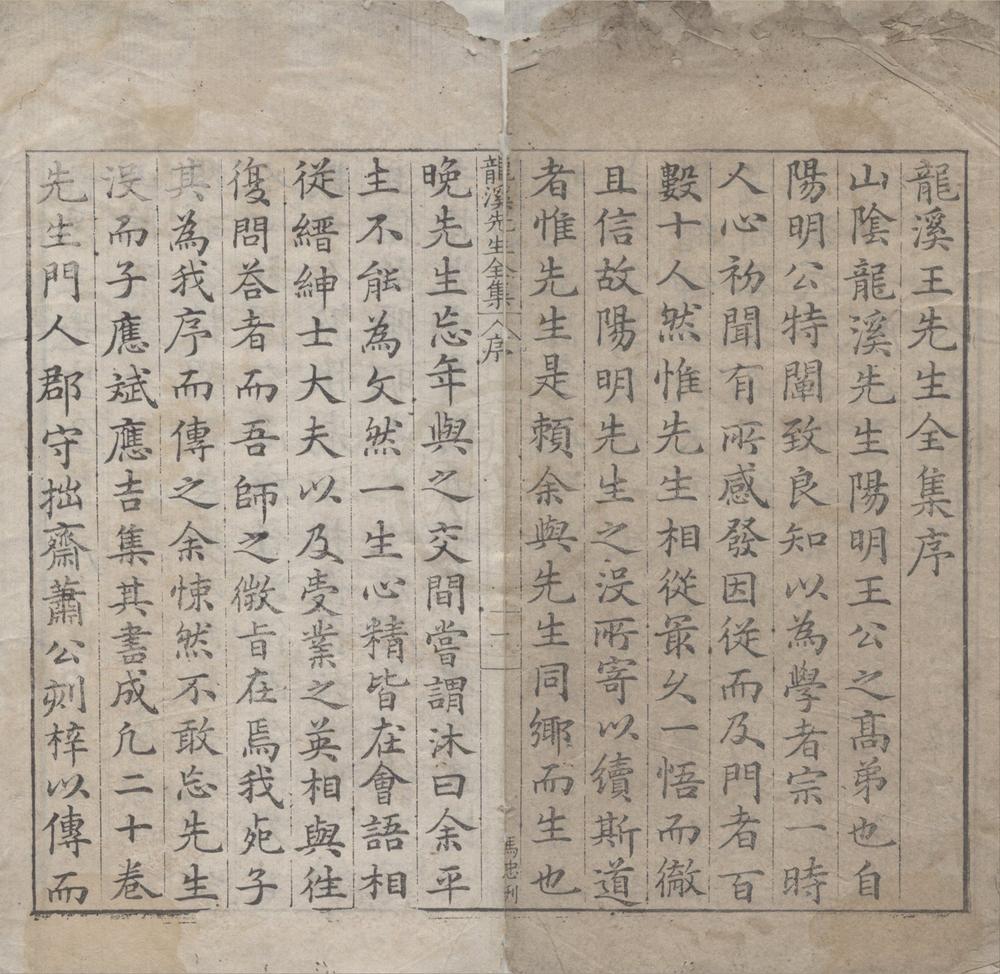 龍溪王先生全集序
山陰龍溪先生陽明王公之髙弟也自
陽明公特闡致良知以為學者宗一時
人心初聞有所感發因從而及門者百
數十人然惟先生相從最久一悟而徹
且信故陽明先生之沒所寄以續斯道
者惟先生是賴余與先生同鄉而生也
龍溪先生全集 序
一
馬忠刊
晚先生忘年與之交間嘗謂沐曰余平
生不能為文然一生心精皆在會語相
從縉紳士大夫以及受業之英相與徃
復問荅者而吾師之微旨在焉我死子
其為我序而傳之余悚然不敢忘先生
沒而子應斌應吉集其書成凡二十卷
先生門人郡守拙齋蕭公刻梓以傳而